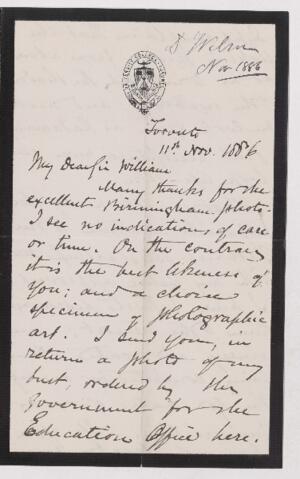 D Wilson
Nov 1886
Toronto
11th Nov. 1886
My Dear Sir William
Many thanks for the
excellent Birmingham photo.
I see no indications of care
or time. On the contrary
it is the best likeness of
you; and a choice
specimen of photographic
art. I send you, in
return a photo of my
bust, ordered by the
Government for the
Education Office here.